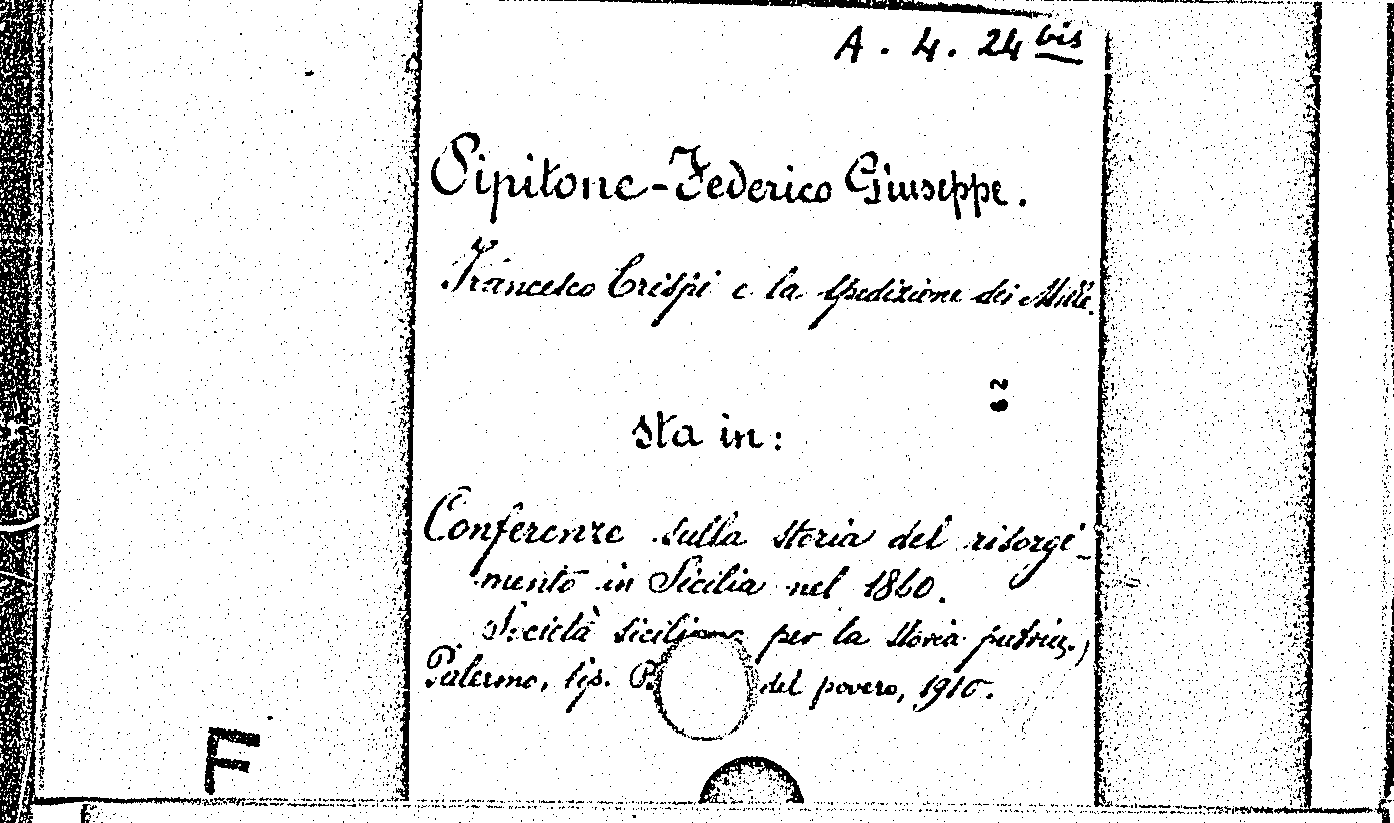 A. 4. 24 bis
Pipitone-Federico Giuseppe.
Francesco Crispi e la spedizione dei Mille.
62
sta in:
Conferenze sulla storia del risorgi-
mento in Sicilia nel 1860.
Società siciliana per la storia patria.)
Palermo, tip. del povero, 1910.
F